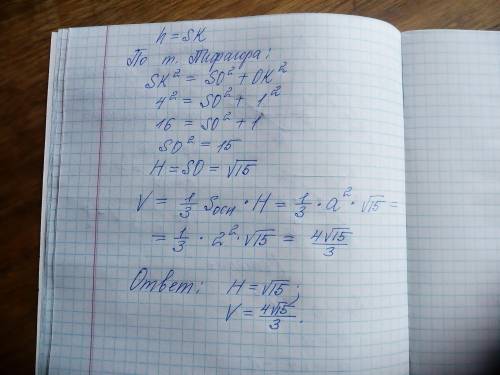 h = SK
По т. Пифагора:
SK² = SO² + OK²
4² = SO² + 1²
16 = SO² + 1
SO² = 15
H = SO = √15
V = 1/3 Sосн · H = 1/3 · a² · √15 =
= 1/3 · 2² · √15 = 4√15/3
Ответ: H = √15;
V = 4√15/3.